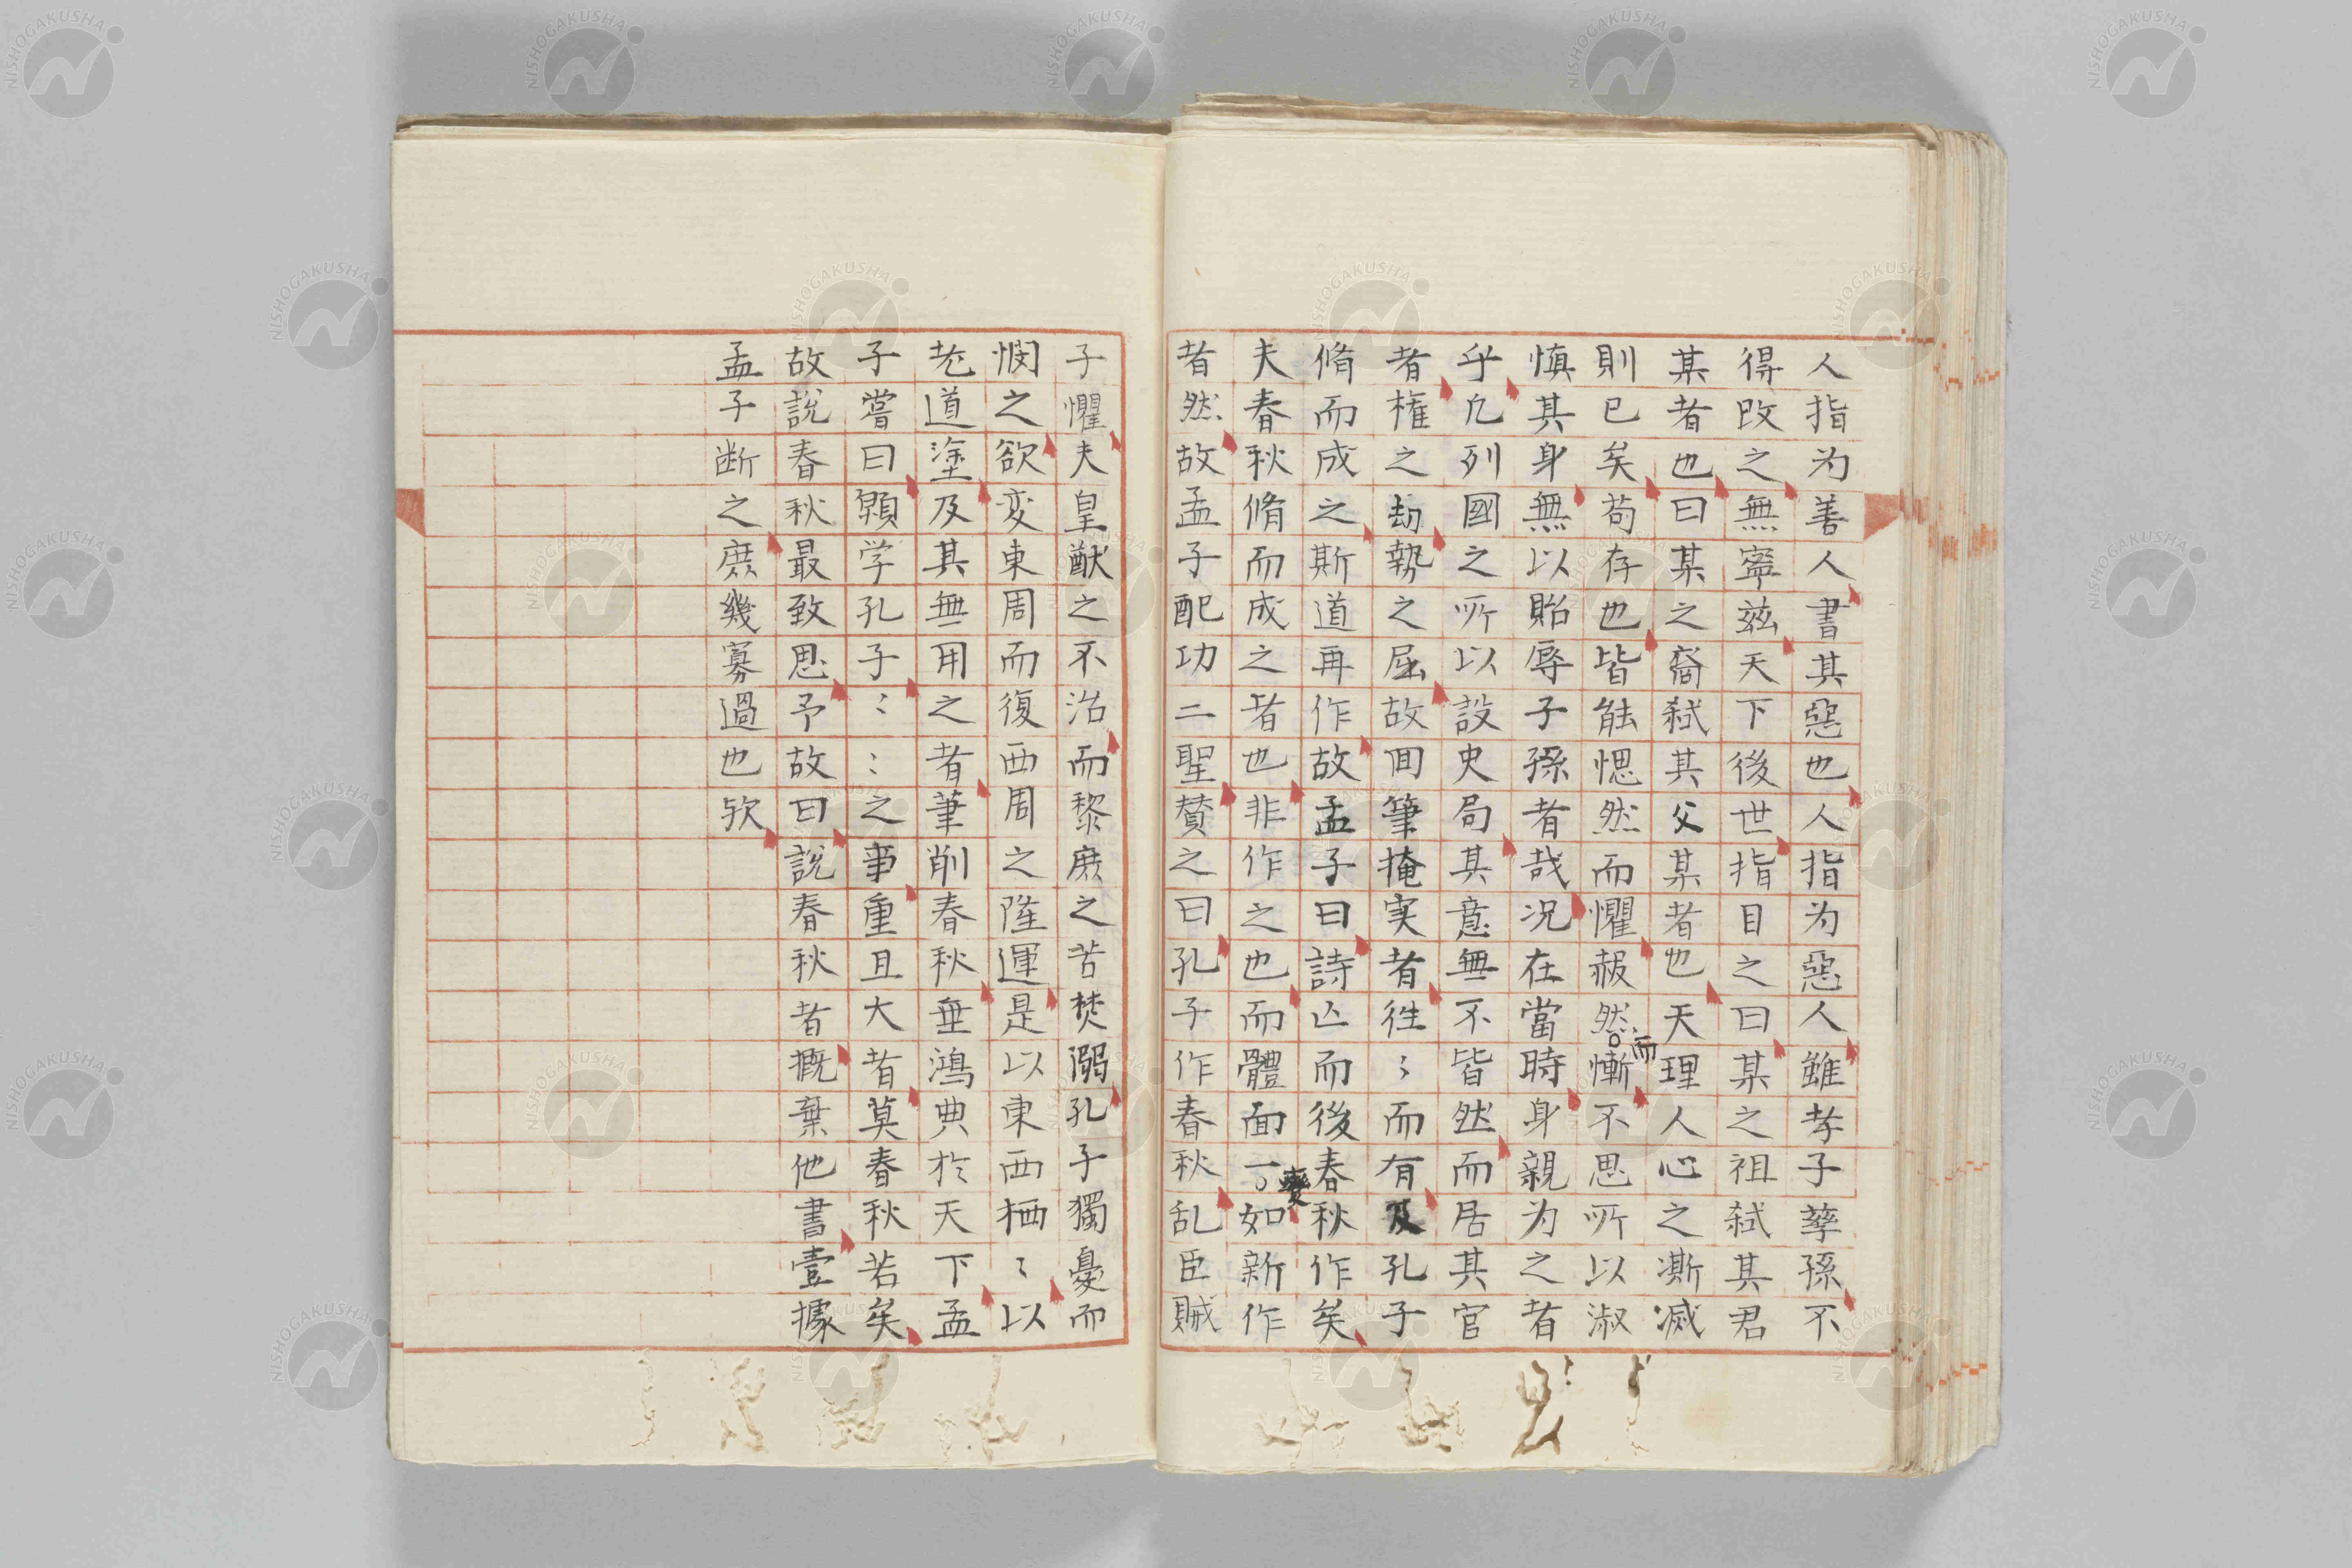 人指为善人書其惡也人指为惡人雖孝子孽孫不
得改之無寧茲天下後世指目之曰某之祖弑其君
某者也曰某之裔弑其父某者也天理人心之澌滅
則已矣苟存也皆能愢然而懼赧然而慚不思所以淑
慎其身無以貽辱子孫者哉況在當時身親为之者
乎凡列國之所以設史局其意無不皆然而居其官
者権之劫勢之屈故囬筆掩実者徃〻而有及孔子
脩而成之斯道再作故孟子曰詩亾而後春秋作矣
夫春秋脩而成之者也非作之也而體面一變如新作
者然故孟子配功二聖賛之曰孔子作春秋乱臣賊
子懼夫皇猷之不治而黎庶之苦焚溺孔子獨憂而
憫之欲変東周而復西周之隆運是以東西栖〻以
老道塗及其無用之者筆削春秋垂鴻典於天下孟
子嘗曰顕学孔子〻〻之事重且大者莫春秋若矣
故說春秋最致思予故曰說春秋者概棄他書壹據
孟子断之庶幾寡過也欤
NISHOGAKUSHA